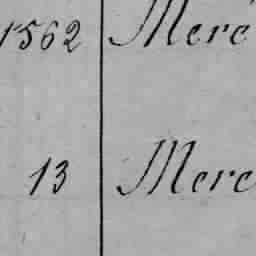 1562 Meré
13 Mere